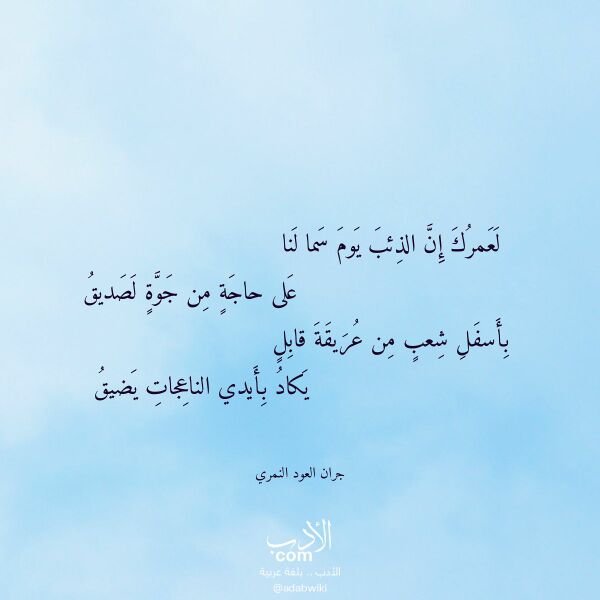 لَعَمرُكَ إِنَّ الذِئبَ يَومَ سَما لَنا
عَلى حاجَةٍ مِن جَوَّةٍ لَصَديقُ
بِأَسفَلِ شِعبٍ مِن عُرَيقَةَ قابِلٍ
يَكادُ بِأَيدي الناعِجاتِ يَضيقُ
جران العود النمري
الأدب
com
الأدب .. بلغة عربية
@adabwiki